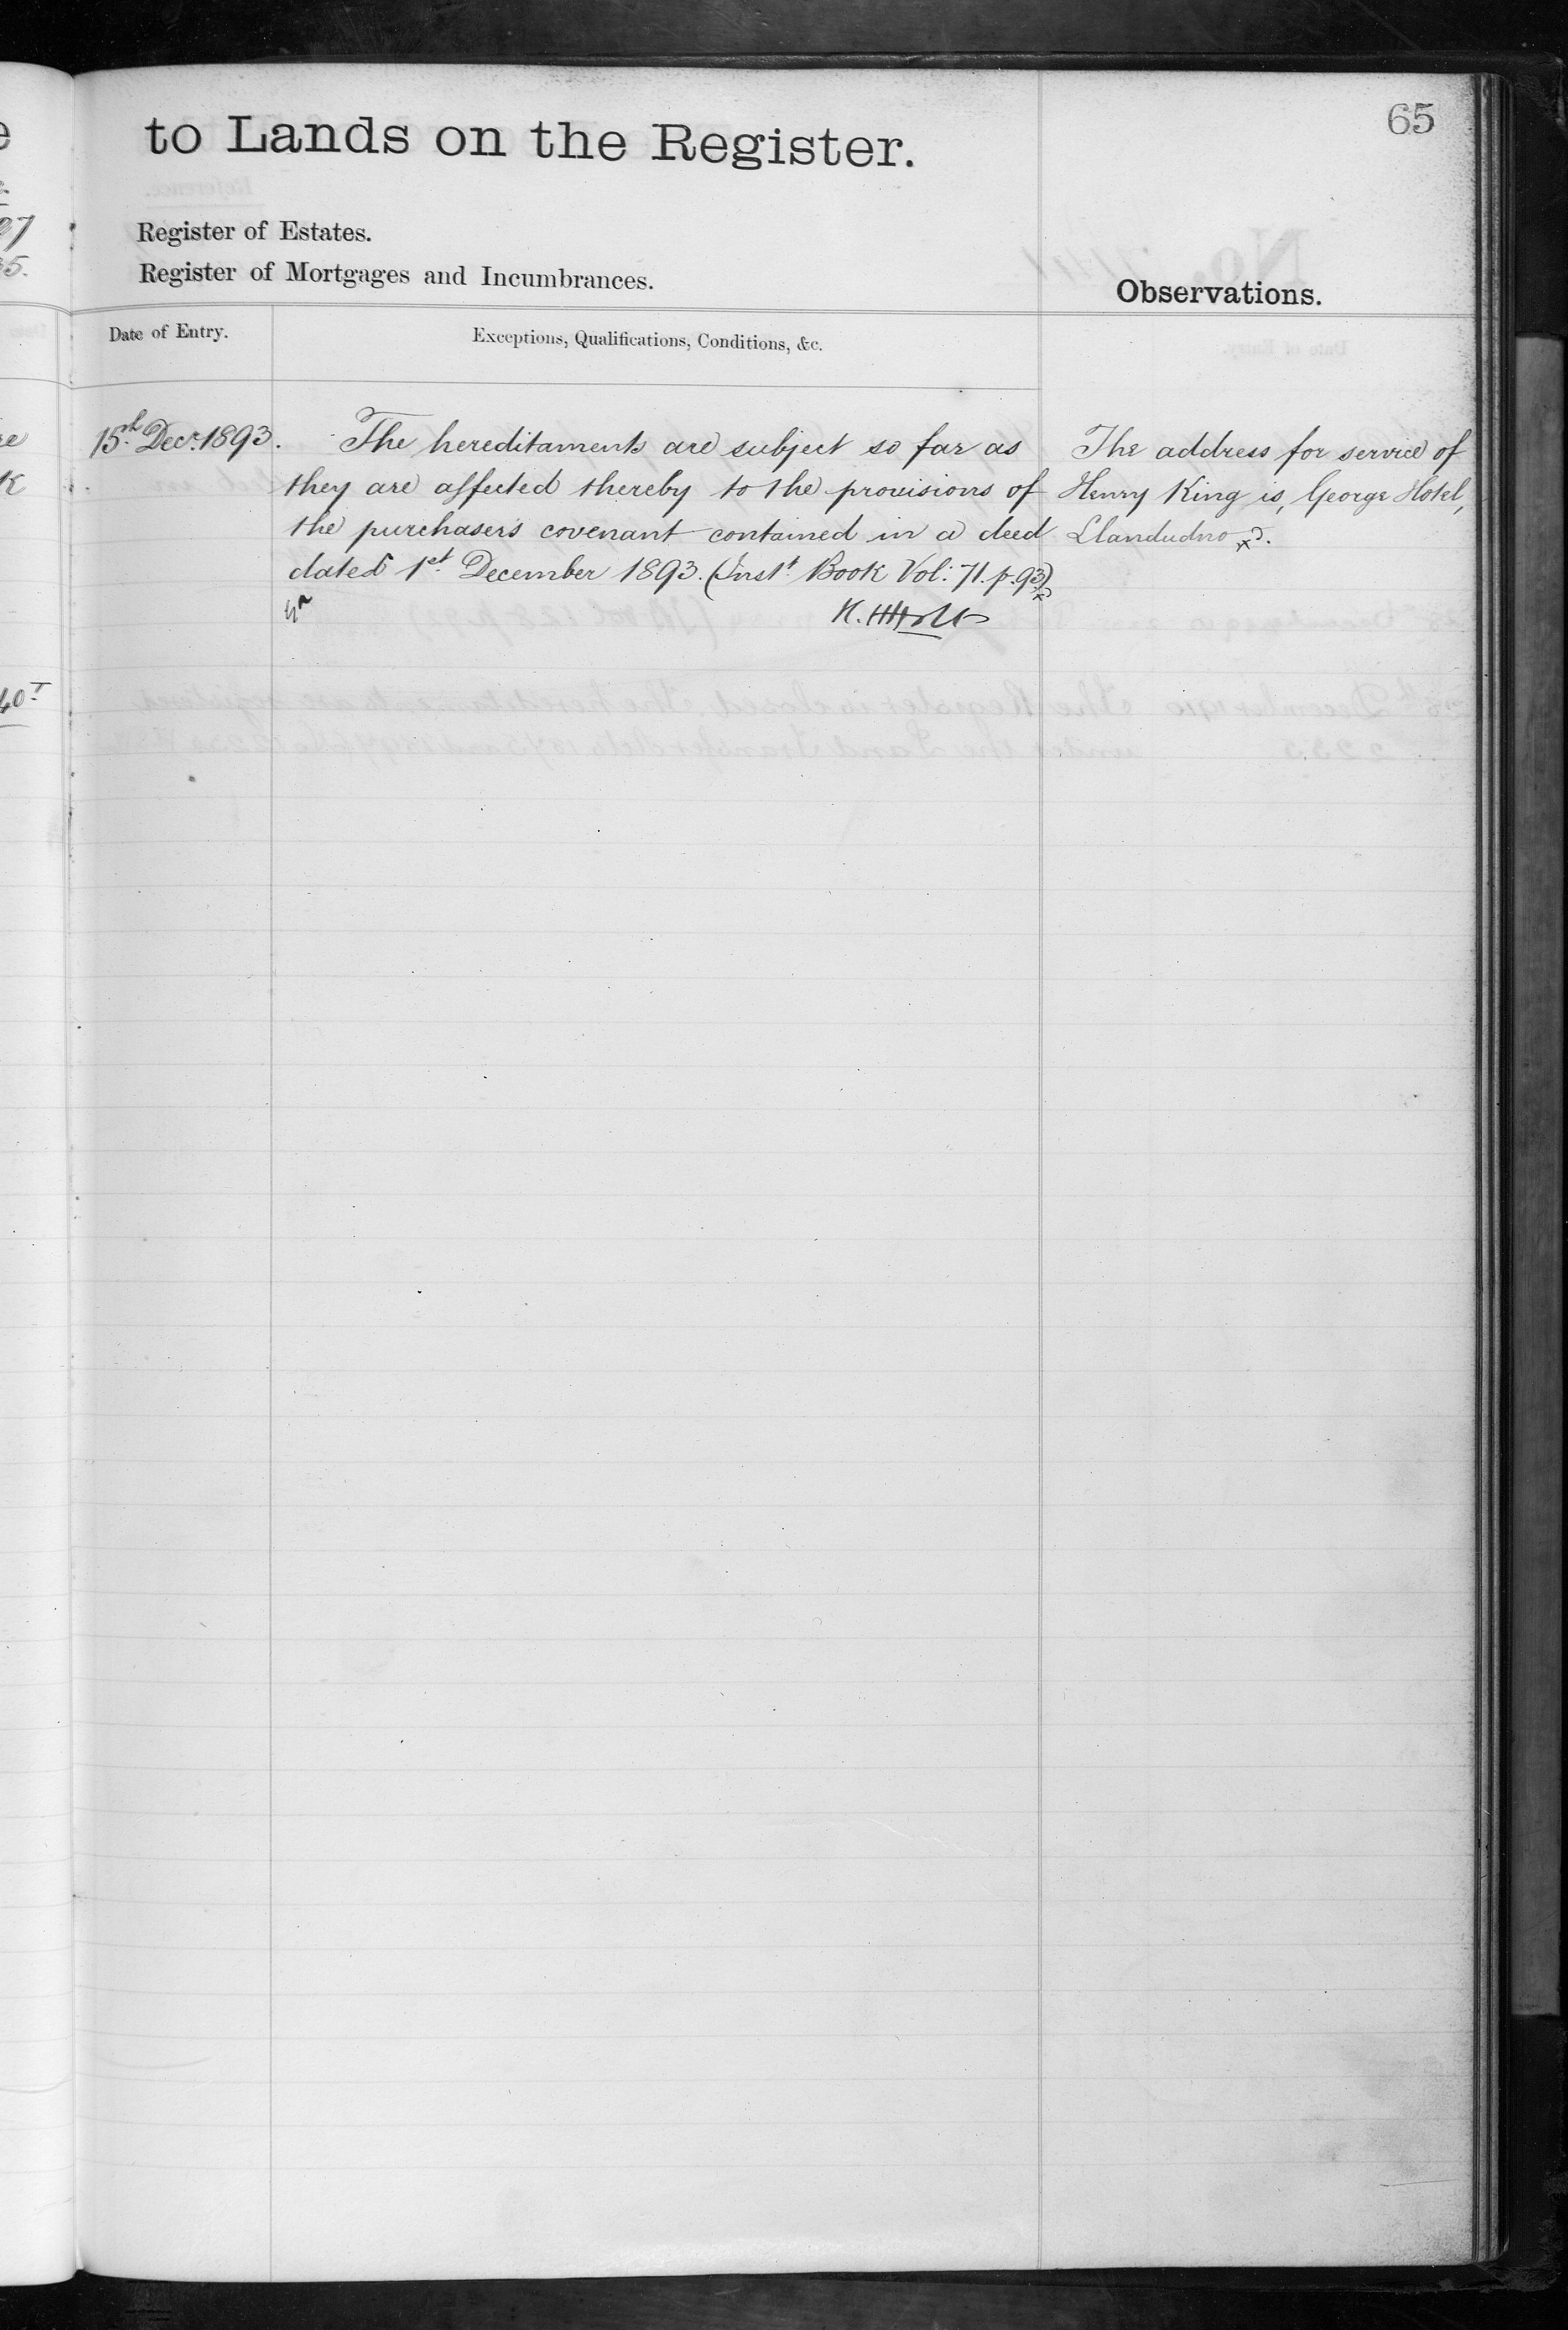 65
to Lands on the Register.
Register of Estates.
Register of Mortgages and Incumbrances.
Observations.
Date of Entry.
Exceptions, Qualifications, Conditions, &c.
15th Decr. 1893.
The hereditaments are subject so far as
they are affected thereby to the provisions of
the purchasers covenant contained in a deed
dated 1st December 1893. (Inst. Book Vol: 71. p. 93)
The address for service of
Henry King is, George Hotel,
Llandudno